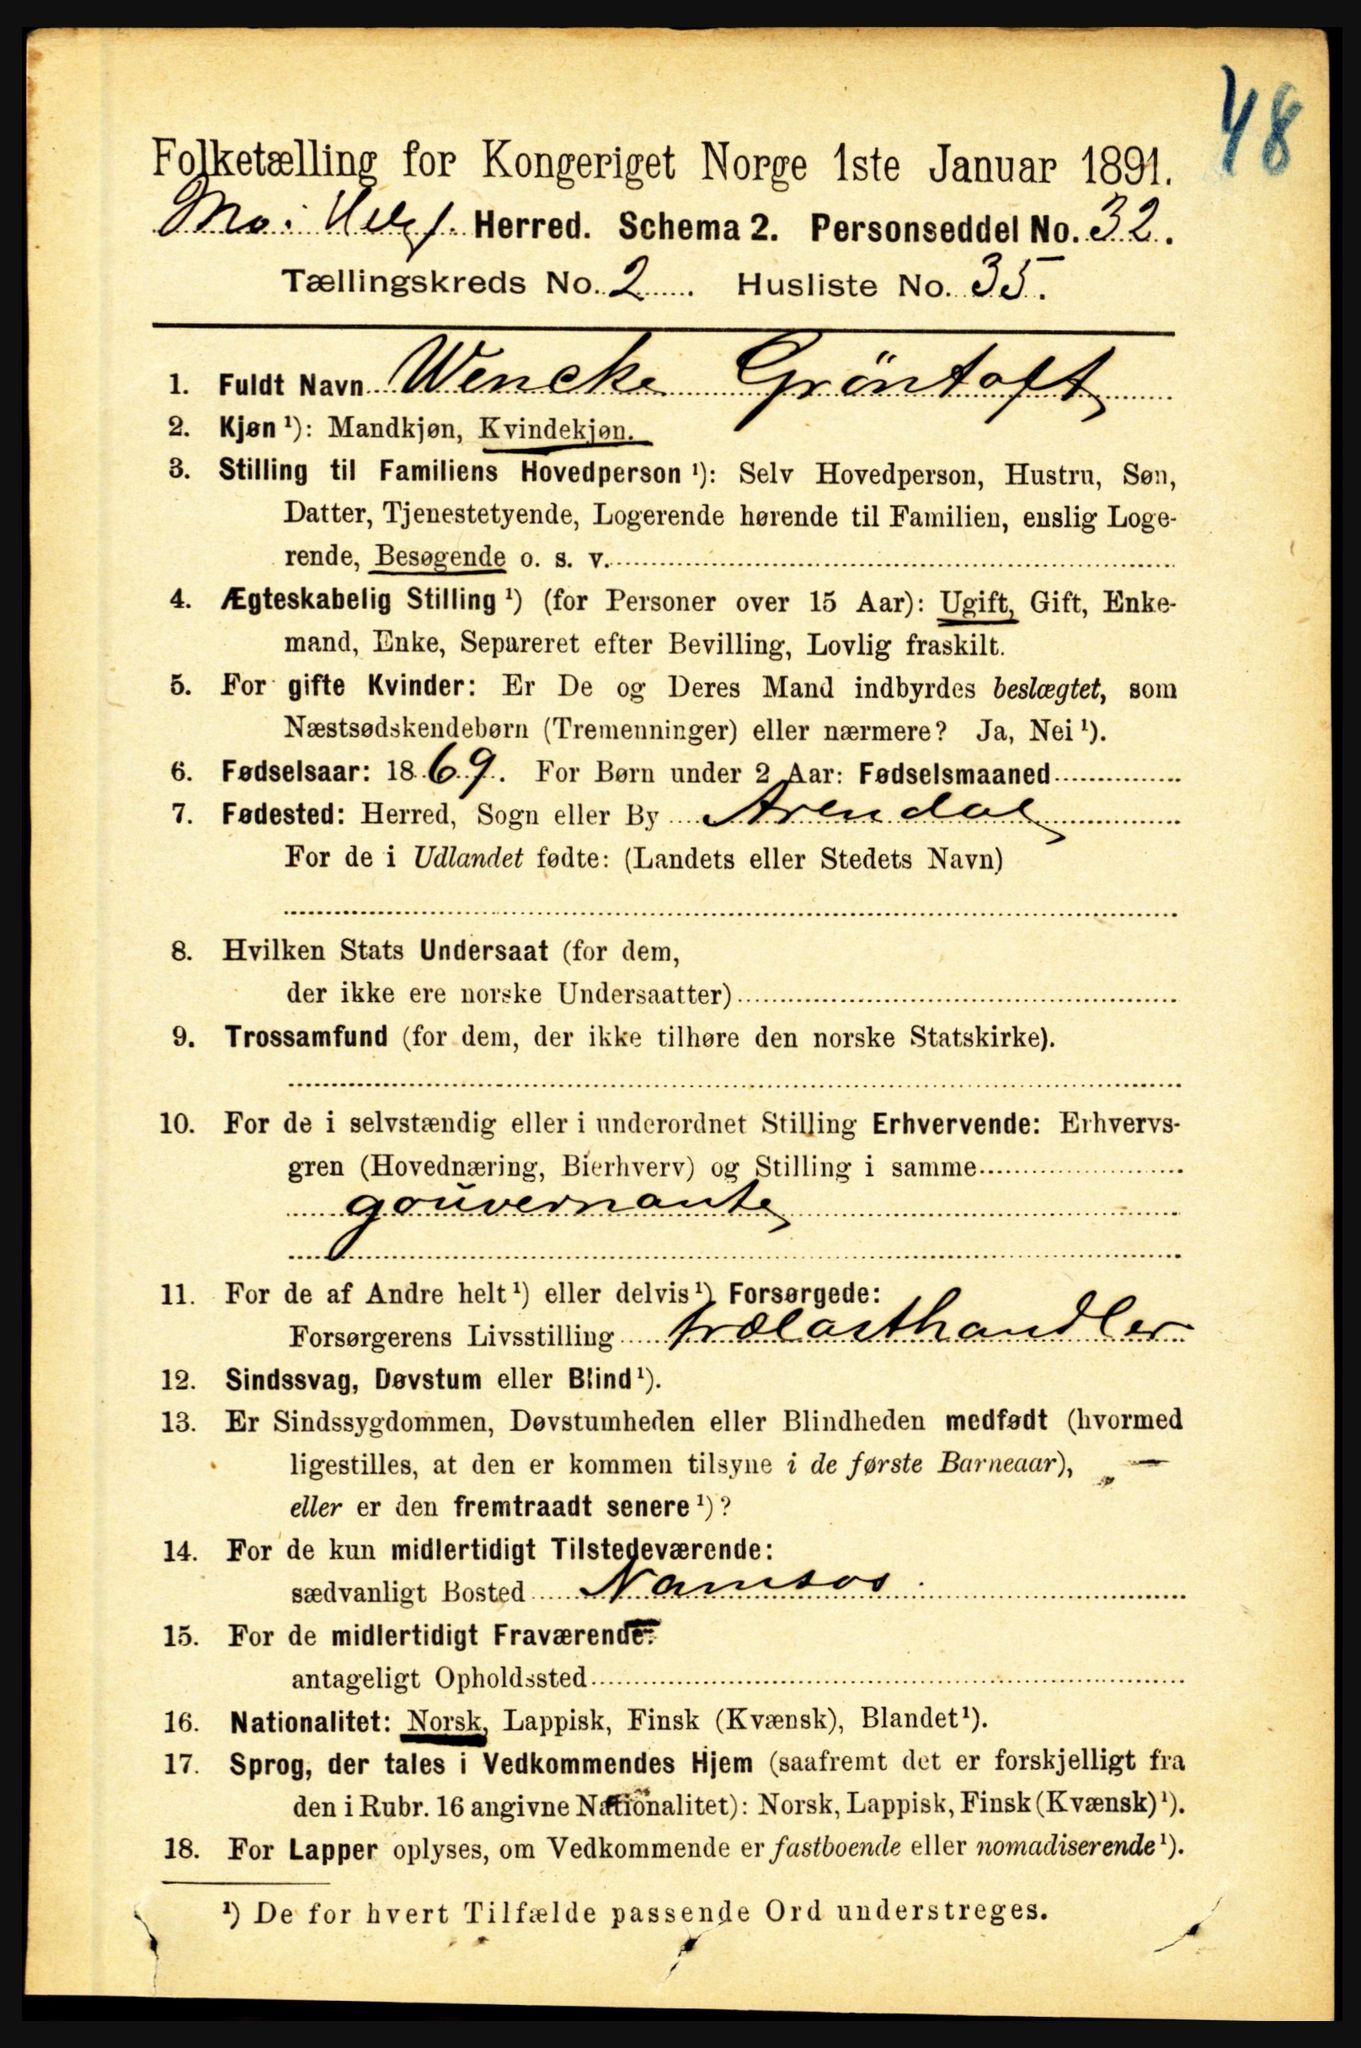 48
Folketælling for Kongeriget Norge 1ste Januar 1891.
Mo i Helgl. Herred. Schema 2. Personseddel No. 32.
Tællingskreds No. 2 Husliste No. 35.
1. Fuldt Navn Wencke Gröntoft
2. Kjøn ¹): Mandkjøn, Kvindekjøn.
3. Stilling til Familiens Hovedperson ¹): Selv Hovedperson, Hustru, Søn,
Datter, Tjenestetyende, Logerende hørende til Familien, enslig Loge-
rende, Besøgende o. s. v.
4. Ægteskabelig Stilling ¹) (for Personer over 15 Aar): Ugift, Gift, Enke-
mand, Enke, Separeret efter Bevilling, Lovlig fraskilt.
5. For gifte Kvinder: Er De og Deres Mand indbyrdes beslægtet, som
Næstsødskendebørn (Tremenninger) eller nærmere? Ja, Nei ¹).
6. Fødselsaar: 1869. For Børn under 2 Aar: Fødselsmaaned
7. Fødested: Herred, Sogn eller By Arendal
For de i Udlandet fødte: (Landets eller Stedets Navn)
8. Hvilken Stats Undersaat (for dem,
der ikke ere norske Undersaatter)
9. Trossamfund (for dem, der ikke tilhøre den norske Statskirke).
10. For de i selvstændig eller i underordnet Stilling Erhvervende: Erhvervs-
gren (Hovednæring, Bierhverv) og Stilling i samme
gouvernante
11. For de af Andre helt ¹) eller delvis ¹) Forsørgede:
Forsørgerens Livsstilling trælasthandler
12. Sindssvag, Døvstum eller Blind ¹).
13. Er Sindssygdommen, Døvstumheden eller Blindheden medfødt (hvormed
ligestilles, at den er kommen tilsyne i de første Barneaar),
eller er den fremtraadt senere ¹)?
14. For de kun midlertidigt Tilstedeværende:
sædvanligt Bosted Namsos
15. For de midlertidigt Fraværende:
antageligt Opholdssted
16. Nationalitet: Norsk, Lappisk, Finsk (Kvænsk), Blandet ¹).
17. Sprog, der tales i Vedkommendes Hjem (saafremt det er forskjelligt fra
den i Rubr. 16 angivne Nationalitet): Norsk, Lappisk, Finsk (Kvænsk) ¹).
18. For Lapper oplyses, om Vedkommende er fastboende eller nomadiserende ¹).
¹) De for hvert Tilfælde passende Ord understreges.